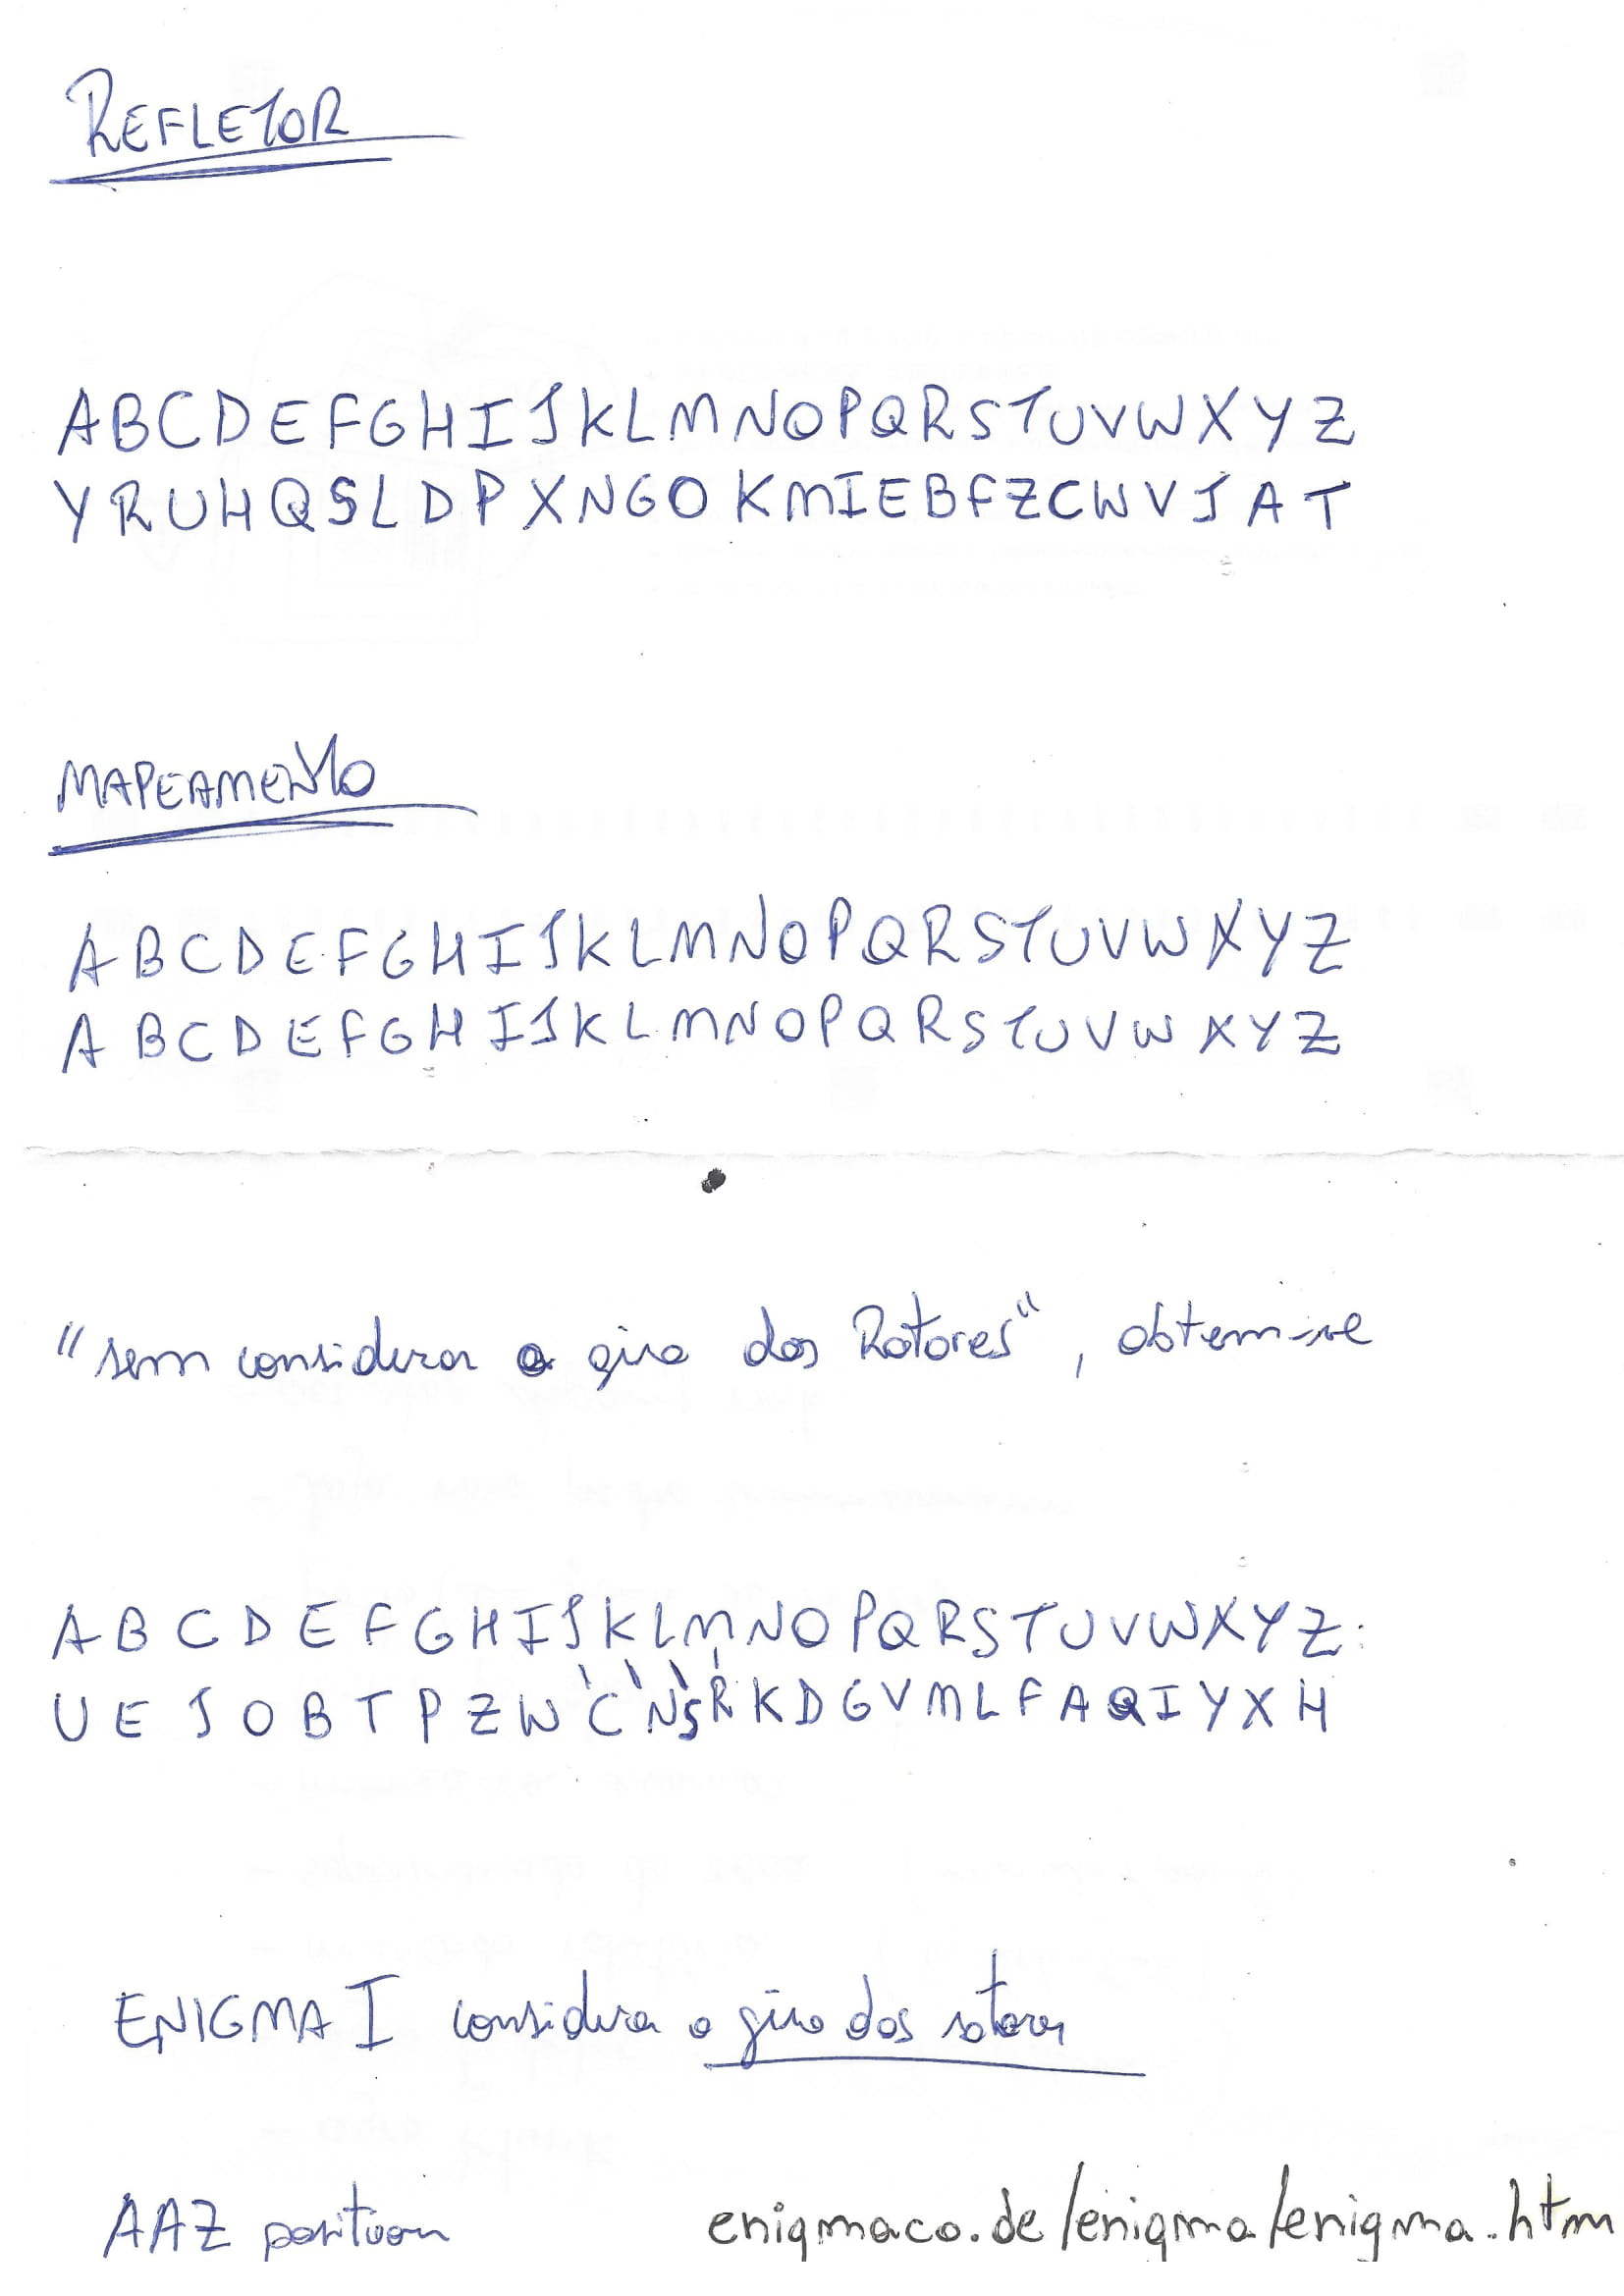 REFLETOR
ABCDEFGHIJKLMNOPQRSTUVWXYZ
YRUHQSLDPXNGOKMIEBFZCWVJAT
MAPEAMENTO
ABCDEFGHIJKLMNOPQRSTUVWXYZ
ABCDEFGHIJKLMNOPQRSTUVWXYZ
"sem considerar o giro dos Rotores", obtem-se
ABCDEFGHIJKLMNOPQRSTUVWXYZ:
UEJOBTPZWCNSRKDGVMLFAQIYXH
ENIGMA I considera o giro dos rotores
AAZ position
enigmaco.de/enigma/enigma.htm